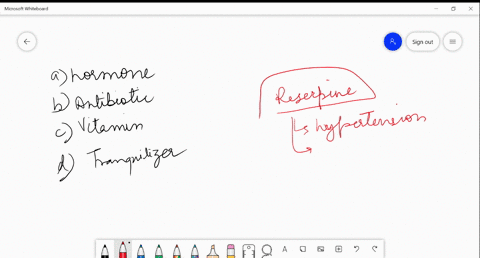 Microsoft Whiteboard
Sign out
a) hormone
b) Antibiotic
c) Vitamin
d) Tranquilizer
Reserpine
hypertension